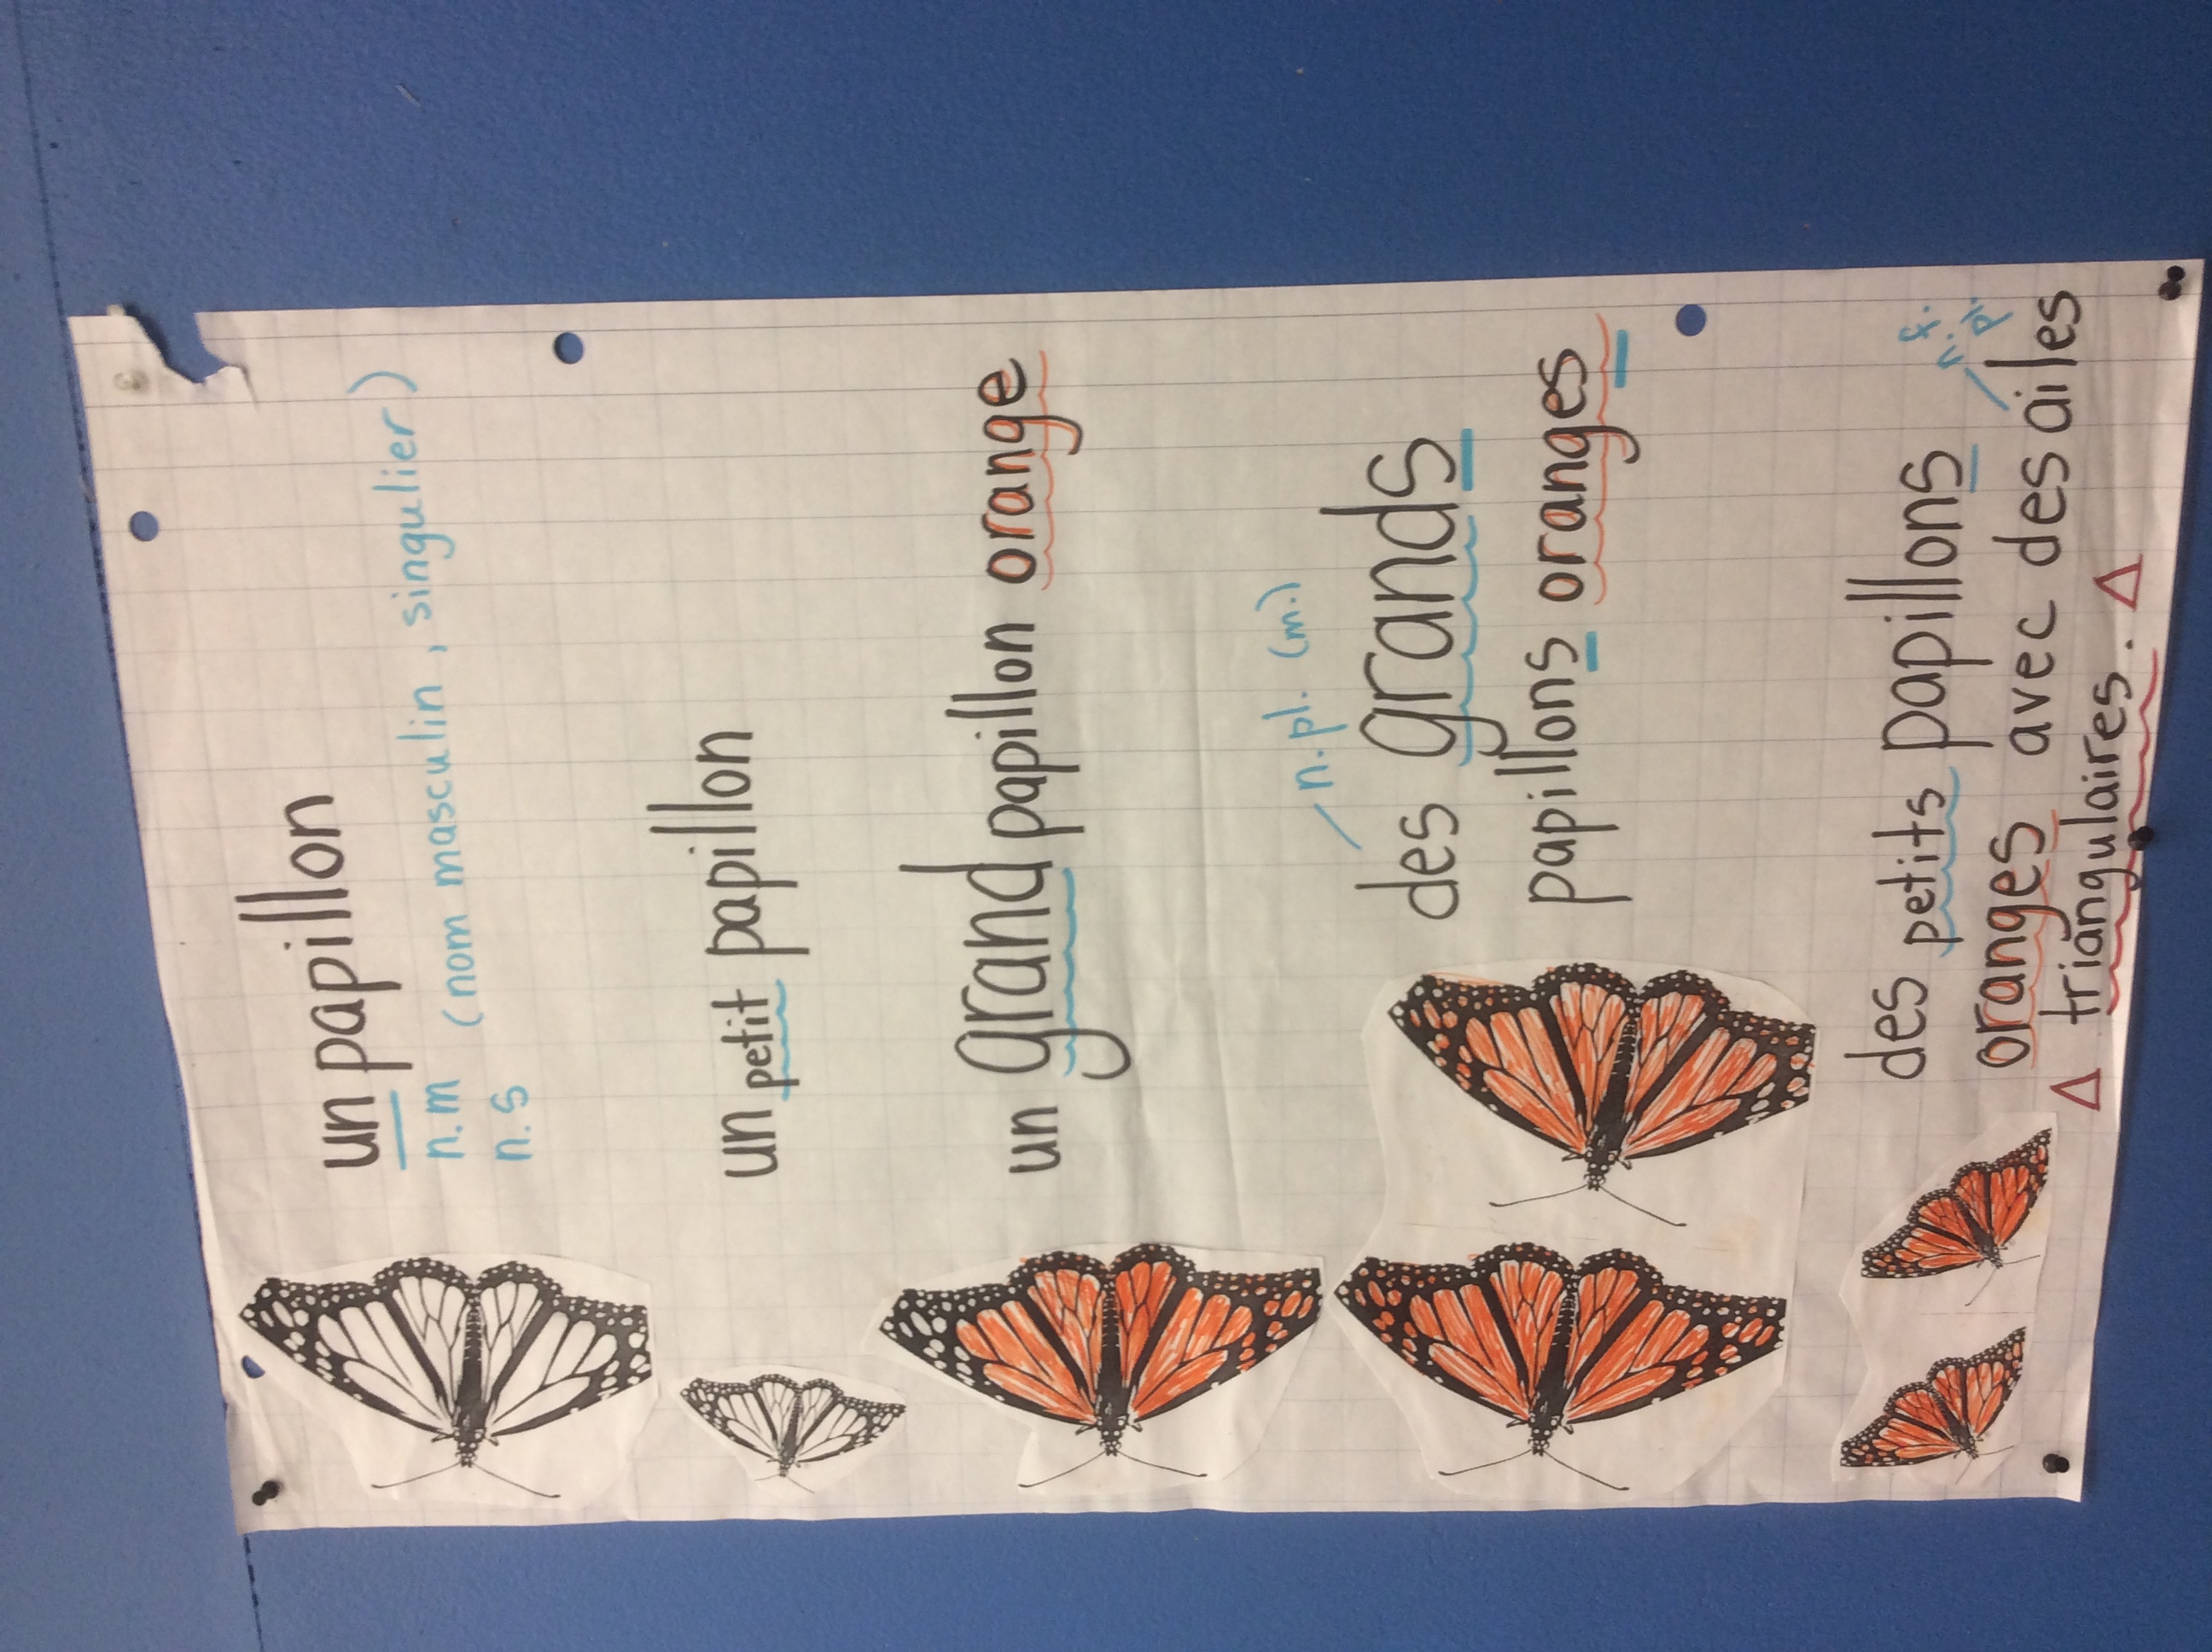 un papillon
n.m (nom masculin, singulier)
n.s
un petit papillon
un grand papillon orange
n.pl. (m.)
des grands
papillons oranges
des petits papillons
n. f.
pl.
oranges avec des ailes
triangulaires.